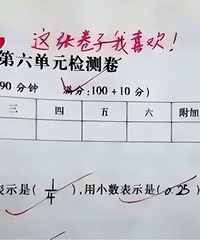 这张卷子我喜欢！
第六单元检测卷
90分钟 满分:100+10分)
三 四 五 六 附加
表示是( 1/4 ),用小数表示是( 0.25 )